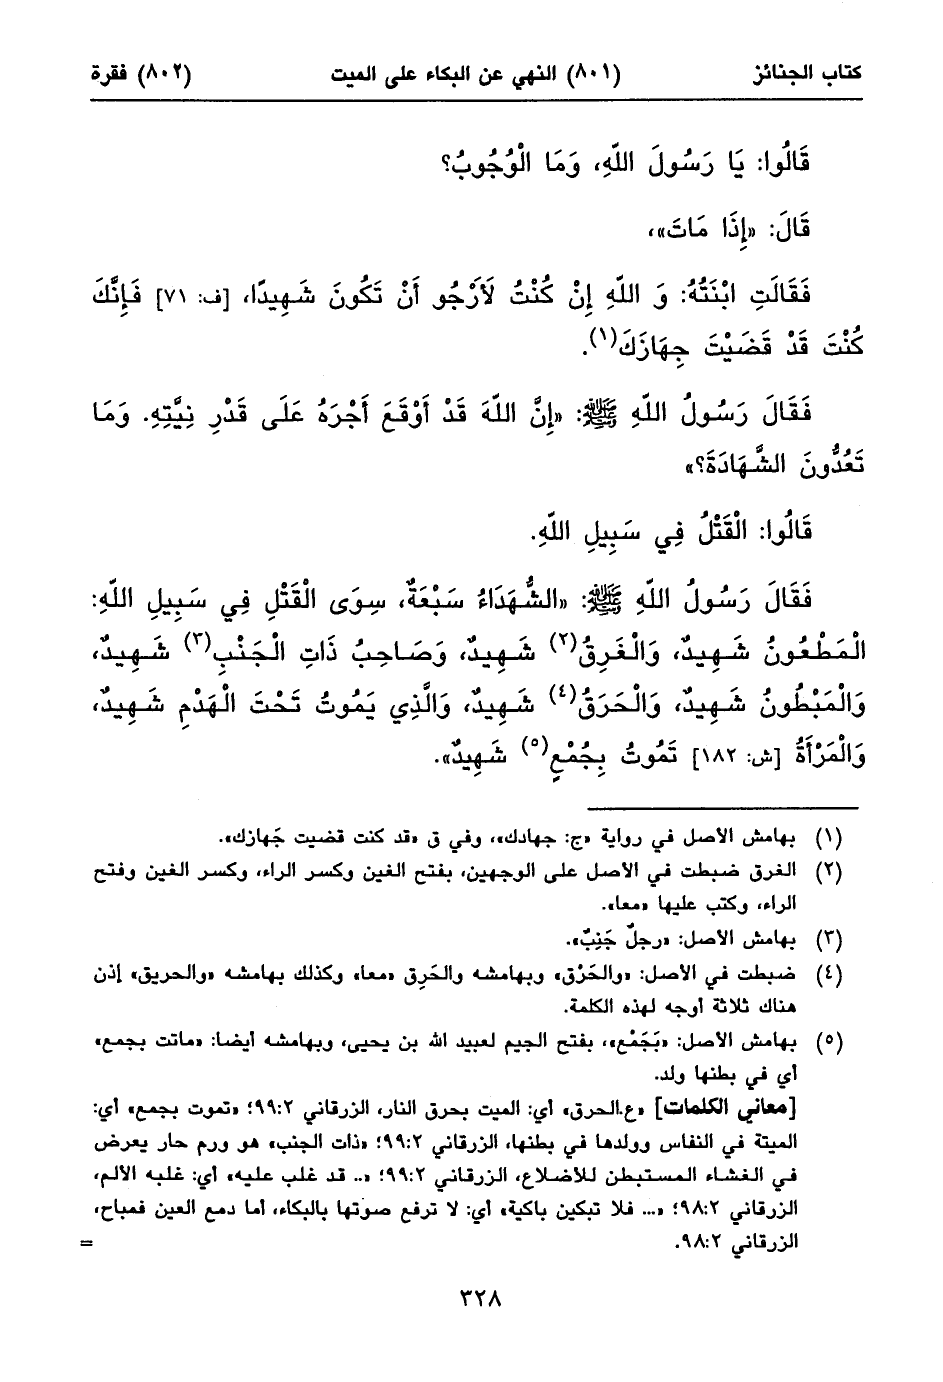 كتاب الجنائز (٨٠١) النهي عن البكاء على الميت (٨٠٢) فقرة
قَالُوا: يَا رَسُولَ اللهِ، وَمَا الْوُجُوبُ؟
قَالَ: «إِذَا مَاتَ»،
فَقَالَتِ ابْنَتُهُ: وَ اللهِ إِنْ كُنْتُ لَأَرْجُو أَنْ تَكُونَ شَهِيدًا، [ف: ٧١] فَإِنَّكَ
كُنْتَ قَدْ قَضَيْتَ جِهَازَكَ(١).
فَقَالَ رَسُولُ اللهِ ﷺ: «إِنَّ اللهَ قَدْ أَوْقَعَ أَجْرَهُ عَلَى قَدْرِ نِيَّتِهِ. وَمَا
تَعُدُّونَ الشَّهَادَةَ؟»
قَالُوا: الْقَتْلُ فِي سَبِيلِ اللهِ.
فَقَالَ رَسُولُ اللهِ ﷺ: «الشُّهَدَاءُ سَبْعَةٌ، سِوَى الْقَتْلِ فِي سَبِيلِ اللهِ:
الْمَطْعُونُ شَهِيدٌ، وَالْغَرِقُ(٢) شَهِيدٌ، وَصَاحِبُ ذَاتِ الْجَنْبِ(٣) شَهِيدٌ،
وَالْمَبْطُونُ شَهِيدٌ، وَالْحَرَقُ(٤) شَهِيدٌ، وَالَّذِي يَمُوتُ تَحْتَ الْهَدْمِ شَهِيدٌ،
وَالْمَرْأَةُ [ش: ١٨٢] تَمُوتُ بِجُمْعٍ(٥) شَهِيدٌ».
(١) بهامش الأصل في رواية «ج: جهادك»، وفي ق «قد كنت قضيت جَهازك».
(٢) الغرق ضبطت في الأصل على الوجهين، بفتح الغين وكسر الراء، وكسر الغين وفتح
الراء، وكتب عليها «معا».
(٣) بهامش الأصل: «رجلٌ جَنِبٌ».
(٤) ضبطت في الأصل: «والحَرْق» وبهامشه والحَرِق «معا» وكذلك بهامشه «والحريق» إذن
هناك ثلاثة أوجه لهذه الكلمة.
(٥) بهامش الأصل: «بَجَمْع»، بفتح الجيم لعبيد الله بن يحيى، وبهامشه أيضا: «ماتت بجمع»
أي في بطنها ولد.
[معاني الكلمات] «ع.الحرق» أي: الميت بحرق النار، الزرقاني ٩٩:٢؛ «تموت بجمع» أي:
الميتة في النفاس وولدها في بطنها، الزرقاني ٩٩:٢؛ «ذات الجنب» هو ورم حار يعرض
في الغشاء المستبطن للأضلاع، الزرقاني ٩٩:٢؛ «.. قد غلب عليه» أي: غلبه الألم،
الزرقاني ٩٨:٢؛ «... فلا تبكين باكية» أي: لا ترفع صوتها بالبكاء، أما دمع العين فمباح،
الزرقاني ٩٨:٢. =
٣٢٨